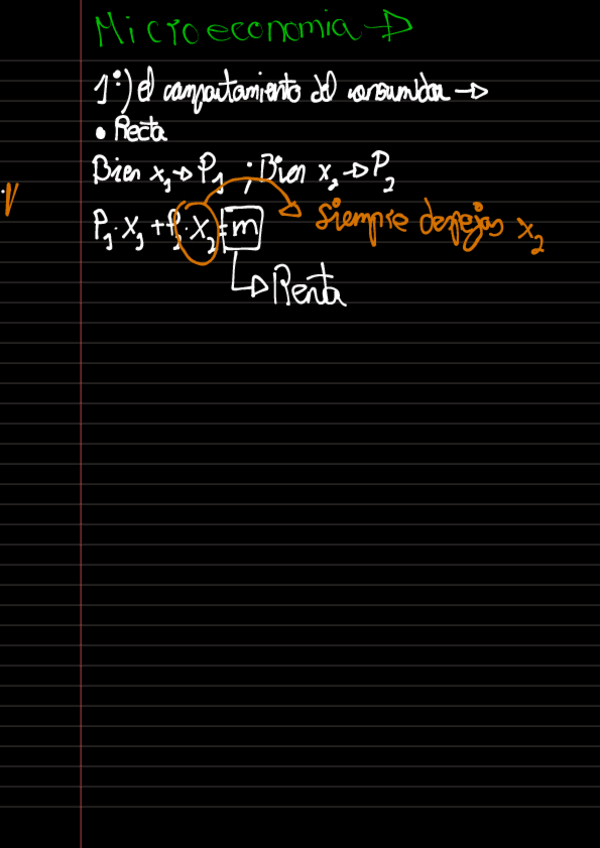 Microeconomia →
1º) el comportamiento del consumidor →
• Recta
Bien x₁ → P₁ ; Bien x₂ → P₂
P₁·X₁ + P₂·X₂ = m → siempre despejas x₂
↳ Renta